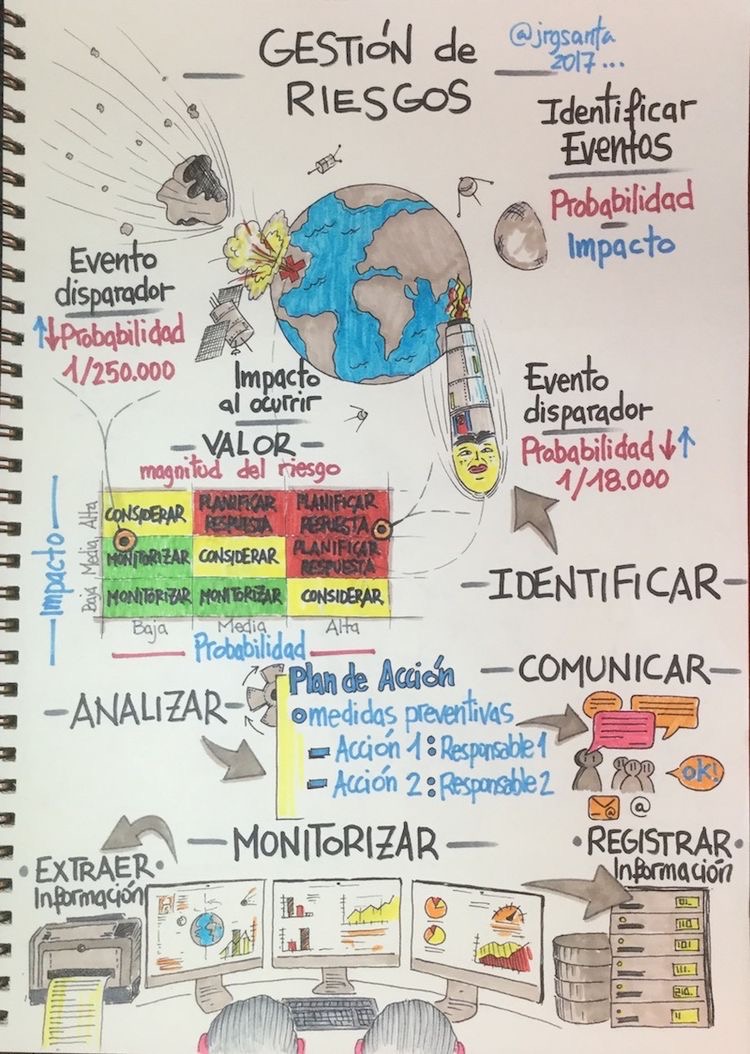 GESTIÓN de
RIESGOS
@jrgsanta
2017...
Identificar
Eventos
Probabilidad
Impacto
Evento
disparador
↑↓Probabilidad
1/250.000
Impacto
al ocurrir
Evento
disparador
Probabilidad↓↑
1/18.000
- VALOR -
magnitud del riesgo
Impacto
Alta
Media
Baja
CONSIDERAR
PLANIFICAR
RESPUESTA
PLANIFICAR
RESPUESTA
MONITORIZAR
CONSIDERAR
PLANIFICAR
RESPUESTA
MONITORIZAR
MONITORIZAR
CONSIDERAR
Baja
Media
Alta
Probabilidad
-IDENTIFICAR-
-ANALIZAR-
Plan de Acción
medidas preventivas
- Acción 1: Responsable 1
- Acción 2: Responsable 2
-COMUNICAR-
ok!
@
-MONITORIZAR-
·EXTRAER·
Información
·REGISTRAR·
Información